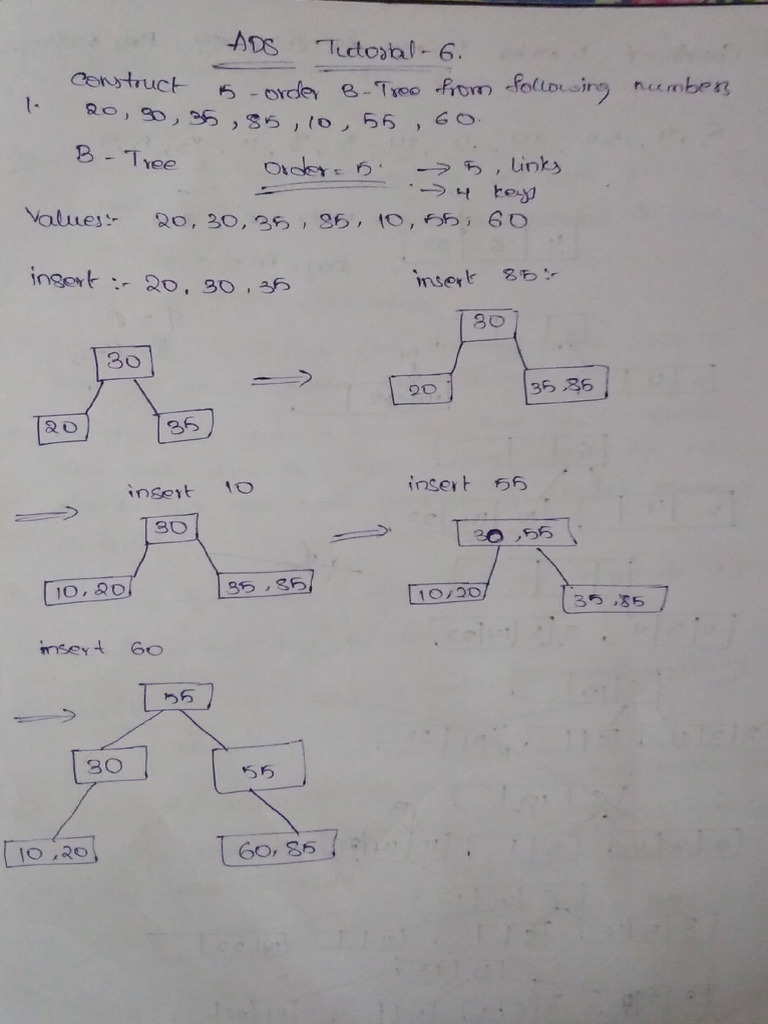 ADS Tutorial-6.
1. Construct 5-order B-Tree from following numbers
20, 30, 35, 85, 10, 55, 60.
B-Tree Order = 5. → 5, links
→ 4 keys
Values:- 20, 30, 35, 85, 10, 55, 60
insert :- 20, 30, 35 insert 85:-
30
20 35
⇒
30
20 35 85
⇒ insert 10
30
10, 20 35, 85
⇒ insert 55
30, 55
10, 20 35, 85
insert 60
⇒
55
30 55
10, 20 60, 85